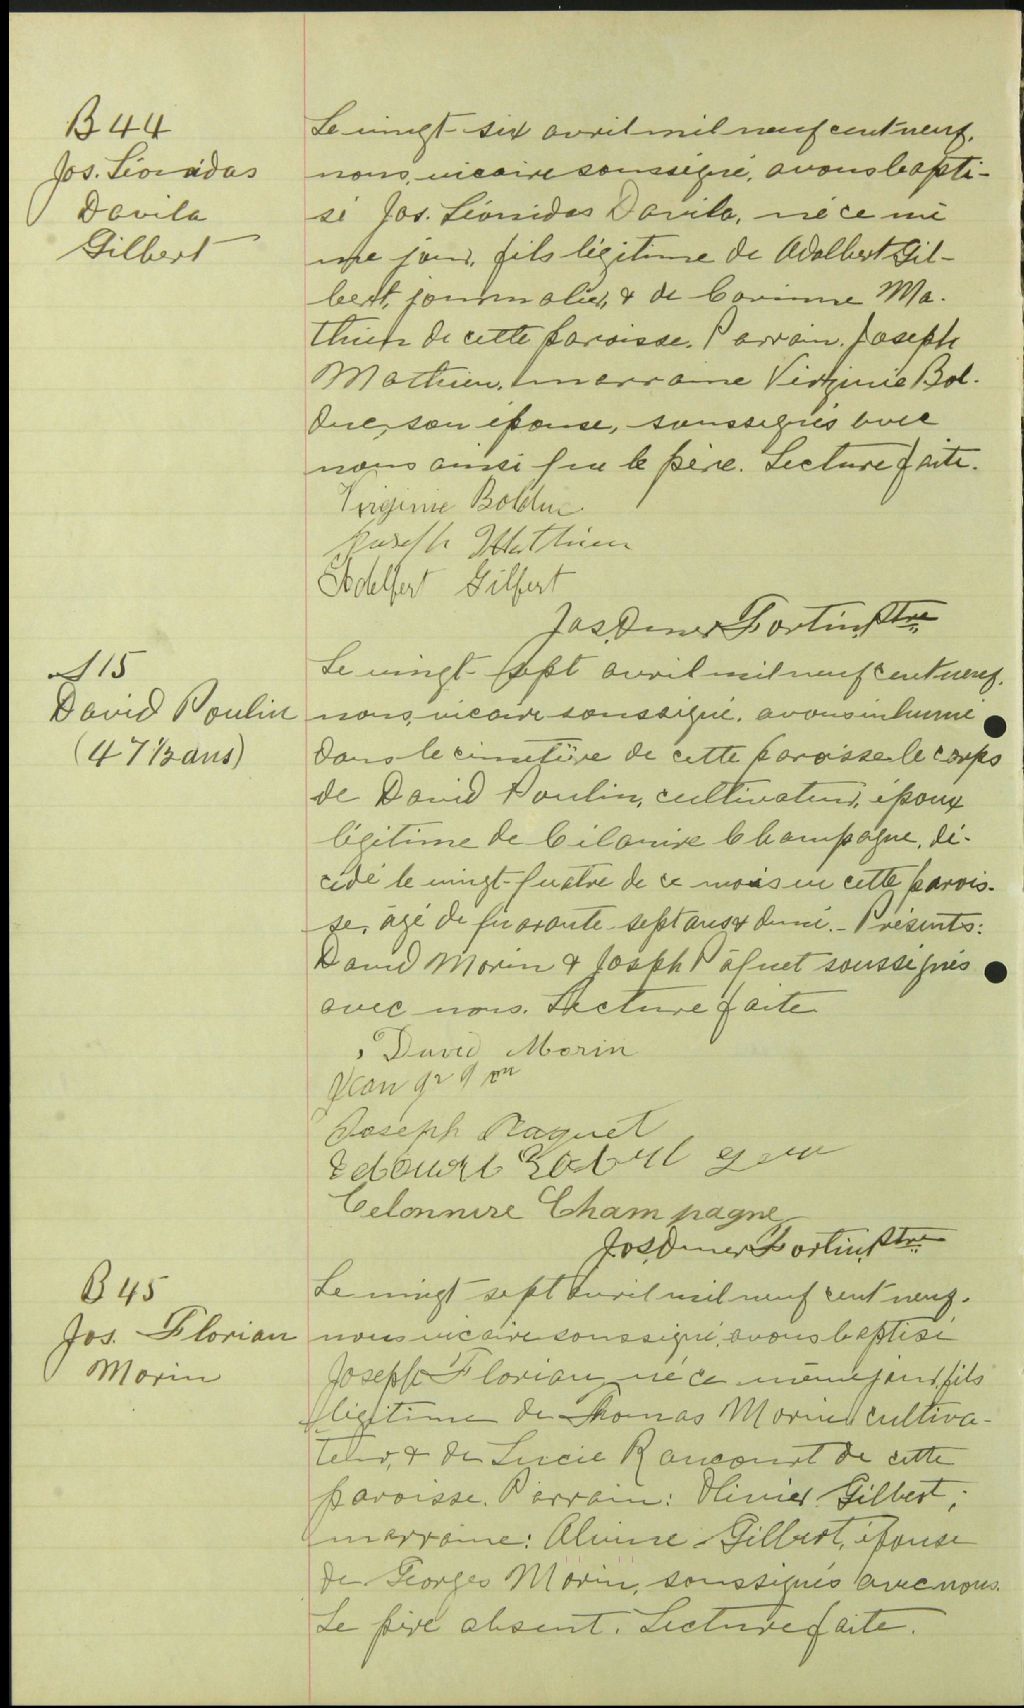 B 44
Jos. Léonidas
Davila
Gilbert
Le vingt-six avril mil neuf cent neuf,
nous, vicaire soussigné, avons bapti-
sé Jos. Léonidas Davila, né ce mê
me jour, fils légitime de Adalbert Gil-
bert, journalier, & de Corinne Ma-
thieu de cette paroisse. Parrain, Joseph
Mathieu, marraine Virginie Bol-
duc, son épouse, soussignés avec
nous ainsi que le père. Lecture faite.
Virginie Bolduc
Joseph Mathieu
Adelbert Gilbert
Jos. Omer Fortin, Ptre
S 15
David Poulin
(47 1/2 ans)
Le vingt-sept avril mil neuf cent neuf,
nous, vicaire soussigné, avons inhumé
dans le cimetière de cette paroisse le corps
de David Poulin, cultivateur, époux
légitime de Célanire Champagne, dé-
cédé le vingt-quatre de ce mois en cette parois-
se, âgé de quarante-sept ans & demi. - Présents:
David Morin & Joseph Pâquet soussignés
avec nous. Lecture faite
David Morin
Jean
Joseph Paquet
Edouard
Celonnire Champagne
Jos. Omer Fortin, Ptre
B 45
Jos. Florian
Morin
Le vingt sept avril mil neuf cent neuf,
nous vicaire soussigné, avons baptisé
Joseph Florian, né ce même jour, fils
légitime de Thomas Morin cultiva-
teur, & de Lucie Rancourt de cette
paroisse. Parrain: Olivier Gilbert;
marraine: Alvine Gilbert, épouse
de Georges Morin, soussignés avec nous.
Le père absent. Lecture faite.